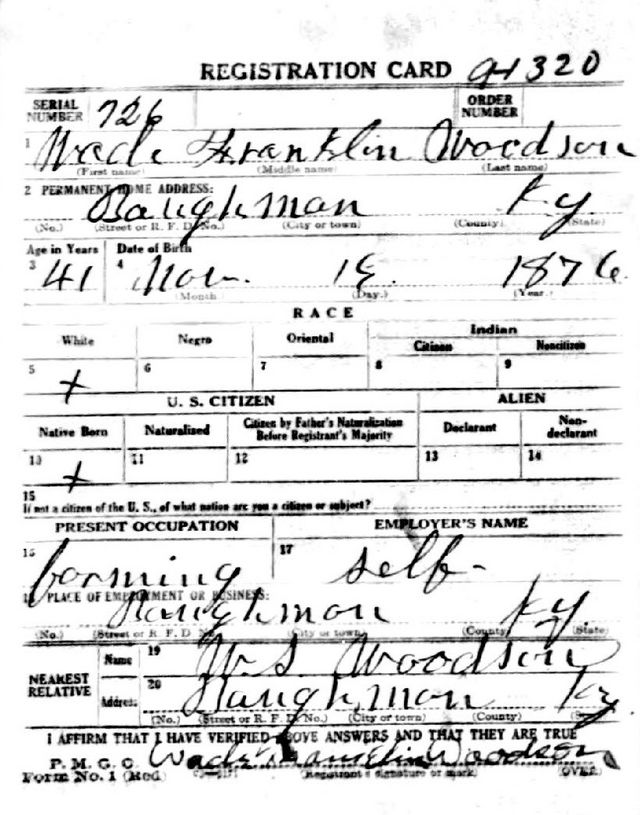 REGISTRATION CARD 320
SERIAL NUMBER 726 ORDER NUMBER
1 Wade Franklin Woodson
(First name) (Middle name) (Last name)
2 PERMANENT HOME ADDRESS:
Baughman Ky
(No.) (Street or R. F. D. No.) (City or town) (County) (State)
Age in Years Date of Birth
3 41 4 Nov. 1876
(Month) (Day.) (Year.)
RACE
White Negro Oriental Indian
Citizen Noncitizen
5 6 7 8 9
U. S. CITIZEN ALIEN
Native Born Naturalized Citizen by Father's Naturalization Before Registrant's Majority Declarant Non-declarant
10 11 12 13 14
15
If not a citizen of the U. S., of what nation are you a citizen or subject?
PRESENT OCCUPATION EMPLOYER'S NAME
16 farming 17 self-
18 PLACE OF EMPLOYMENT OR BUSINESS:
Baughman Ky.
(No.) (Street or R. F. D. No.) (City or town) (County) (State)
NEAREST RELATIVE Name 19 W. S. Woodson
Address 20 Baughman Ky
(No.) (Street or R. F. D. No.) (City or town) (County)
I AFFIRM THAT I HAVE VERIFIED ABOVE ANSWERS AND THAT THEY ARE TRUE
P. M. G. O. Wade Franklin Woodson
Form No. 1 (Red) (Registrant's signature or mark) (OVER)